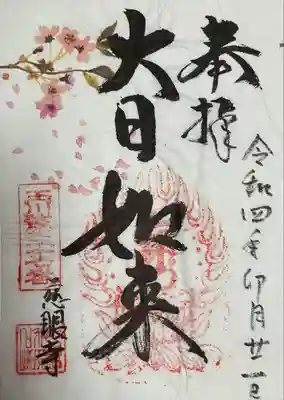 奉拝
令和四年卯月廿一日
大日如来
慈眼寺